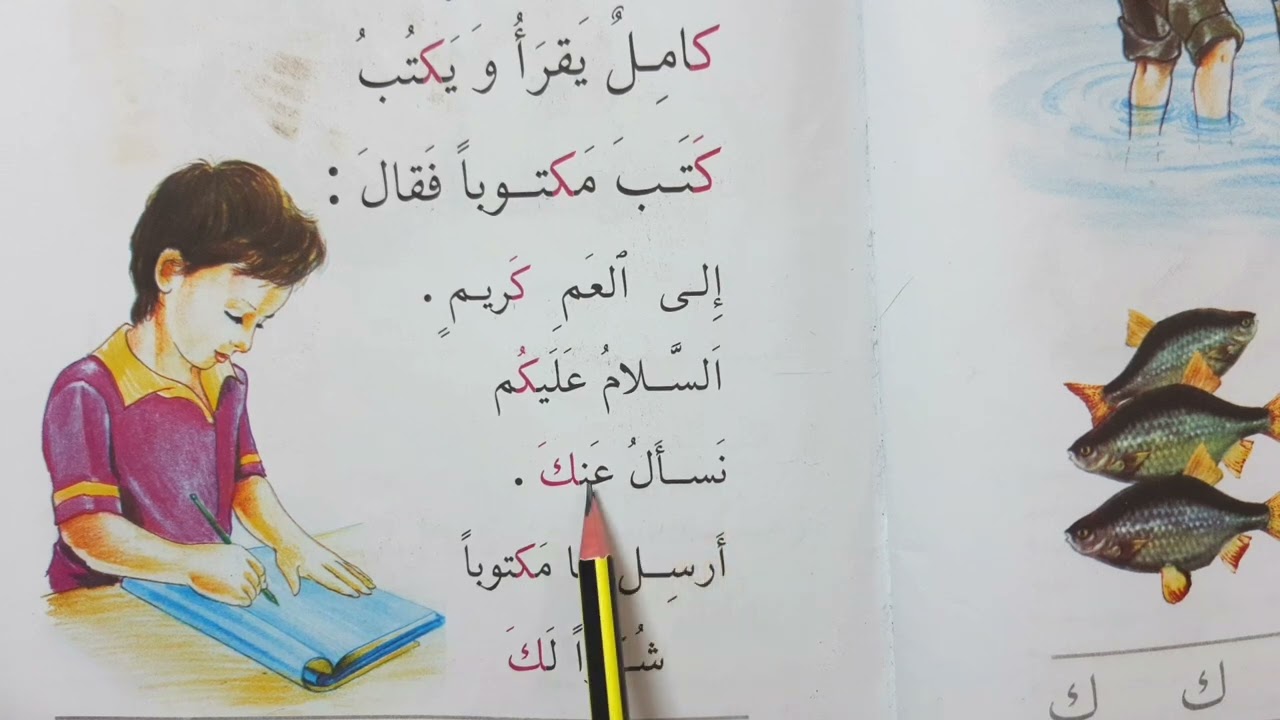 كامِلٌ يَقرَأُ وَ يَكتُبُ
كَتَبَ مَكتوباً فَقالَ :
إِلى ٱلعَمِ كَريمٍ .
اَلسَّلامُ عَلَيكُم
نَسأَلُ عَنكَ .
أَرسِل مَكتوباً
لَكَ
ك ك